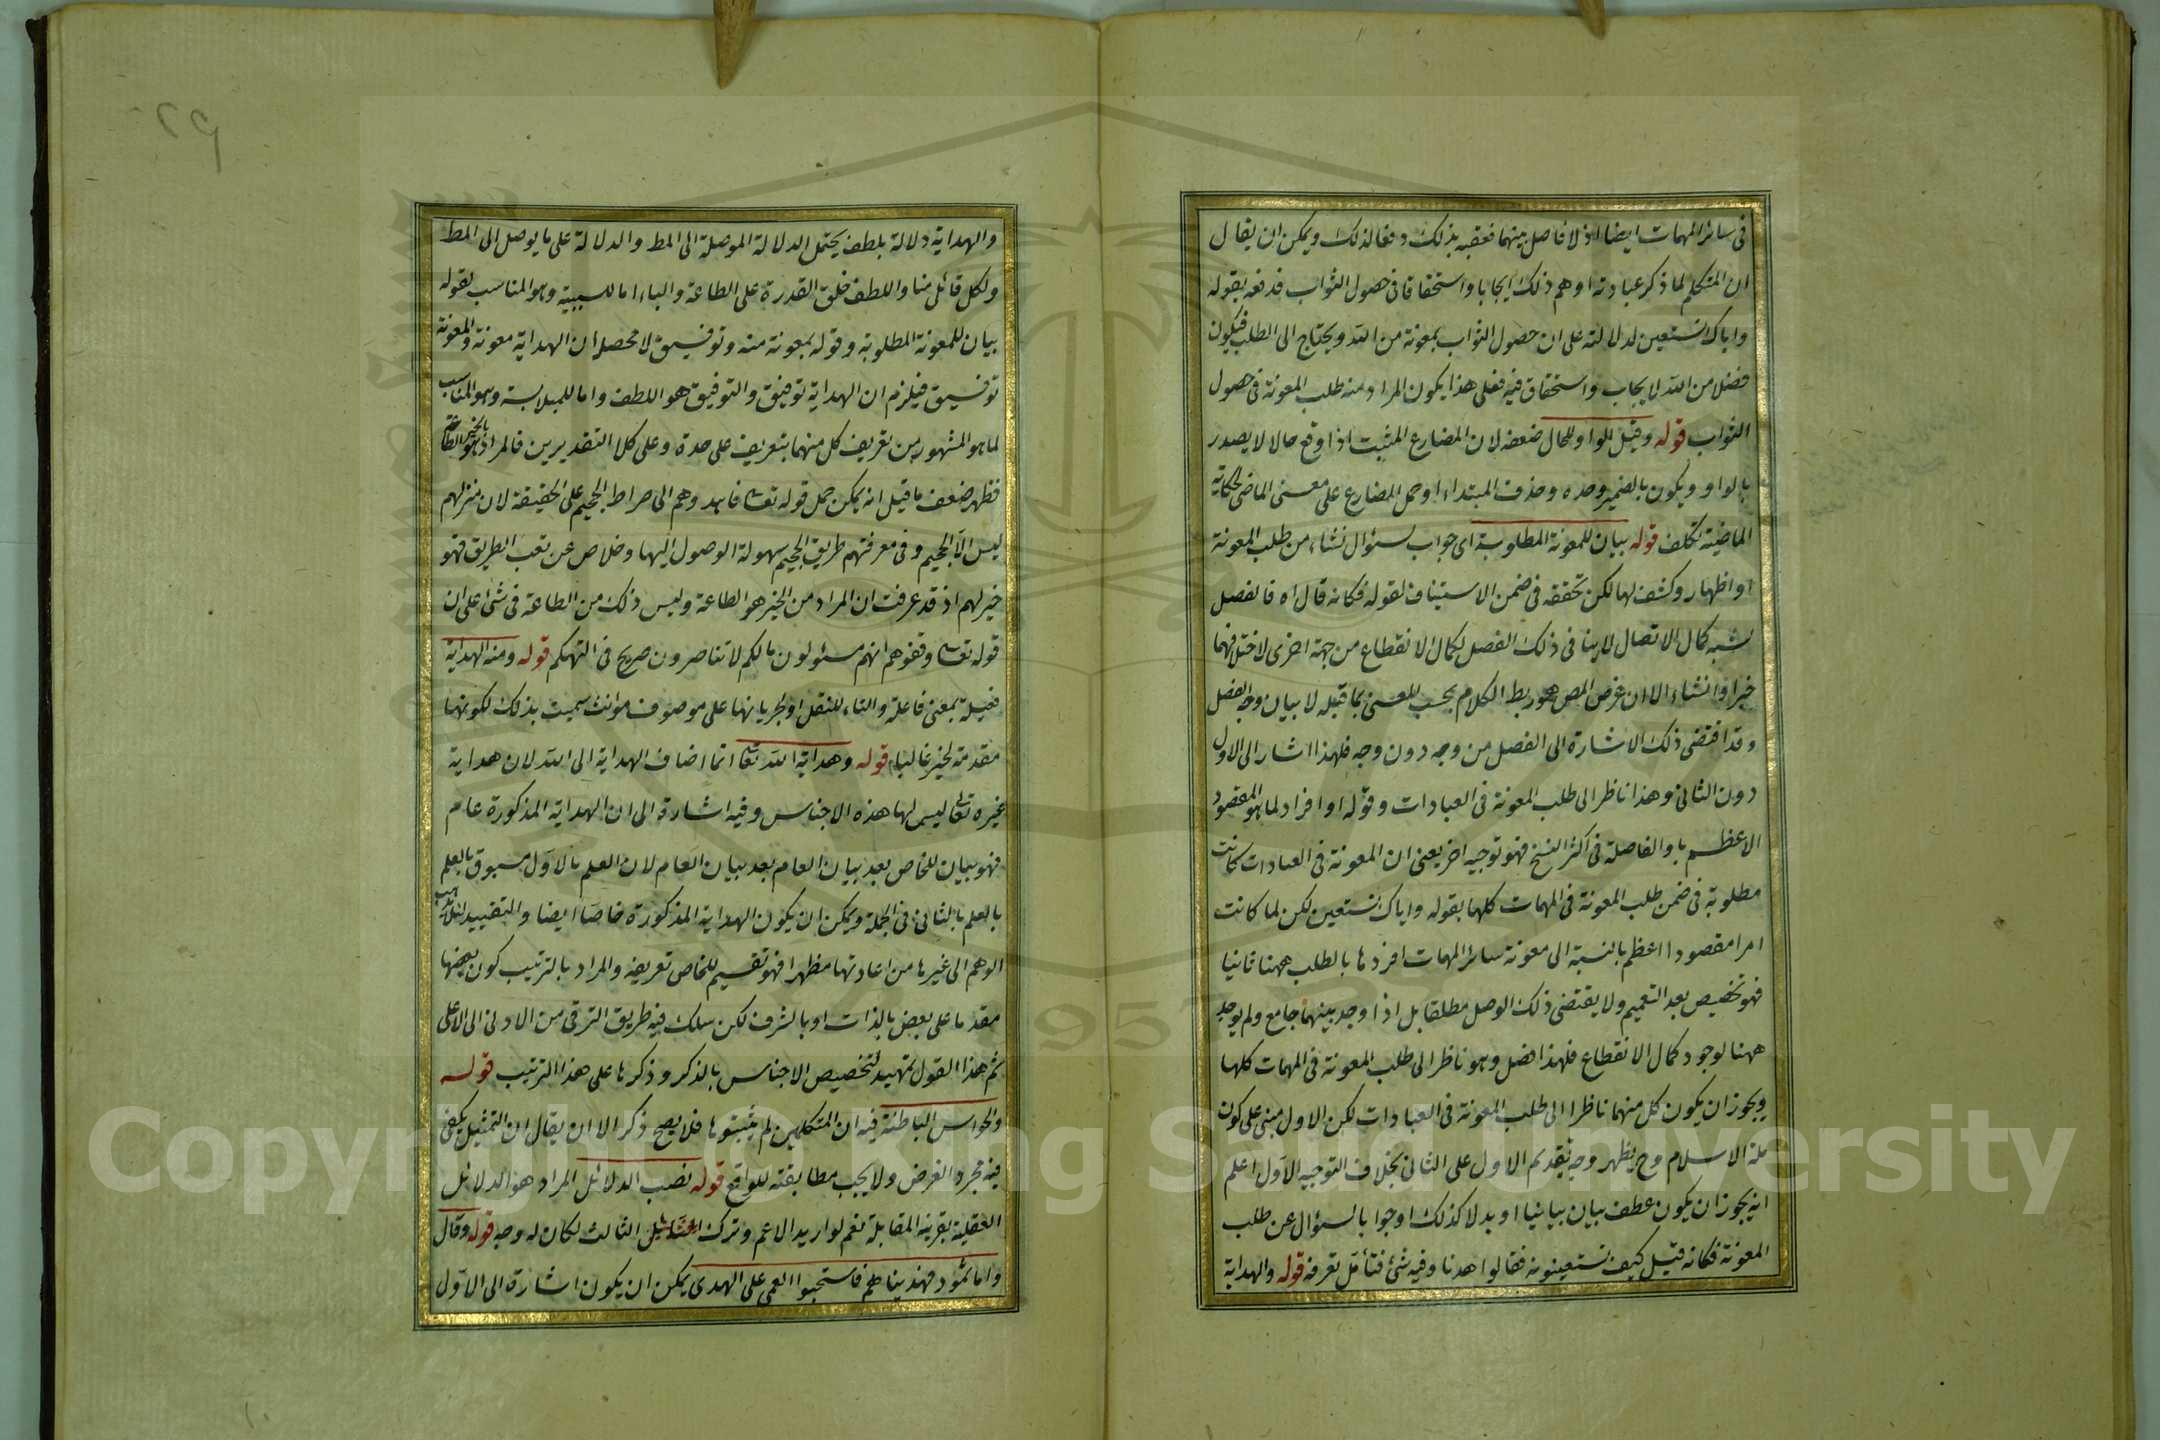 فى سائر المهمات ايضا اذ لا فاصل بينهما فعقبه بذلك دفعا لذلك ويمكن ان يقال
ان المتكلم لما ذكر عبادته اوهم ذلك ايجابا واستحقاقا فى حصول الثواب فدفعه بقوله
واياك نستعين لدلالته على ان حصول الثواب بمعونة من الله ويحتاج الى الطلب فيكون
فضلا من الله لا يجاب واستحقاق فيه فعلى هذا يكون المراد منه طلب المعونة فى حصول
الثواب قوله وقيل الواو للحال ضعفه لان المضارع المثبت اذا وقع حالا لا يصدر
بالواو ويكون بالضمير وحده وحذف المبتداء او حمل المضارع على معنى الماضى لحكاية
الماضية تكلف قوله بيان للمعونة المطلوبة اى جواب لسؤال نشاء من طلب المعونة
او اظهار وكشف لها لكن تحققه فى ضمن الاستيناف لقوله فكانه قال اه فالفصل
لشبه كمال الاتصال لا ينافى ذلك الفصل لكمال الانقطاع من جهة اخرى لاختلافهما
خبرا وانشاء الا ان غرض المص هو ربط الكلام بحسب المعنى بما قبله لا بيان وجه الفصل
وقد اقتضى ذلك الاشارة الى الفصل من وجه دون وجه فلهذا اشار الى الاول
دون الثانى وهذا ناظر الى طلب المعونة فى العبادات وقوله او افراد لما هو المقصود
الاعظم باو الفاصلة فى اكثر النسخ فهو توجيه اخر يعنى ان المعونة فى العبادات كانت
مطلوبة فى ضمن طلب المعونة فى المهمات كلها بقوله واياك نستعين لكن لما كانت
امرا مقصودا اعظم بالنسبة الى معونة سائر المهمات افردها بالطلب ههنا ثانيا
فهو تخصيص بعد التعميم ولا يقتضى ذلك الوصل مطلقا بل اذا وجد بينهما جامع ولم يوجد
ههنا لوجود كمال الانقطاع فلهذا فصل وهو ناظر الى طلب المعونة فى المهمات كلها
ويجوز ان يكون كل منهما ناظرا الى طلب المعونة فى العبادات لكن الاول مبنى على كون
ملة الاسلام وح يظهر وجه تقديم الاول على الثانى بخلاف التوجيه الاول اعلم
انه يجوز ان يكون عطف بيان بيانيا او بدلا كذلك او جوابا لسؤال عن طلب
المعونة فكانه قيل كيف تستعينونه فقالوا اهدنا وفيه شئ فتأمل تعرفه قوله والهداية
والهداية دلالة بلطف يحتمل الدلالة الموصلة الى المط والدلالة على ما يوصل الى المط
ولكل قائل منا واللطف خلق القدرة على الطاعة والباء اما للسببية وهو المناسب لقوله
بيان للمعونة المطلوبة وقوله بمعونة منه وتوفيق لا محصل ان الهداية معونة والمعونة
توفيق فيلزم ان الهداية توفيق والتوفيق هو اللطف واما للملابسة وهو المناسب
لما هو المشهور من تعريف كل منهما بتعريف على حدة وعلى كلا التقديرين فالمراد بالخير هو الطاعة
فظهر ضعف ما قيل انه يمكن حمل قوله تعا فاهدوهم الى صراط الجحيم على الحقيقة لان منزلهم
ليس الا الجحيم وفى معرفتهم طريق الجحيم سهولة الوصول اليها وخلاص عن تعب الطريق فهو
خير لهم اذ قد عرفت ان المراد من الخير هو الطاعة وليس ذلك من الطاعة فى شئ على ان
قوله تعا وقفوهم انهم مسئولون مالكم لا تناصرون صريح فى التهكم قوله ومنه الهداية
فعيلة بمعنى فاعلة والتاء للنقل او لجريانها على موصوف مؤنث سميت بذلك لكونها
مقدمة لخير غالبا قوله وهداية الله تعا انما اضاف الهداية الى الله لان هداية
غيره تعالى ليس لها هذه الاجناس وفيه اشارة الى ان الهداية المذكورة عام
فهو بيان للخاص بعد بيان العام بعد بيان العام لان العلم بالاول مسبوق بالعلم
بالعلم بالثانى فى الجملة ويمكن ان يكون الهداية المذكورة خاصا ايضا والتقييد لئلا يذهب
الوهم الى غيرها من اعادتها مظهرا فهو تقسيم للخاص تعريفه والمراد بالترتيب كون بعضها
مقدما على بعض بالذات او بالشرف لكن سلك فيه طريق الترقى من الادنى الى الاعلى
ثم هذا القول تمهيد لتخصيص الاجناس بالذكر وذكرها على هذا الترتيب قوله
والحواس الباطنة فيه ان المتكلمين لم يثبتوها فلا يصح ذكر الا ان يقال ان التمثيل يكفى
فيه مجرد الفرض ولا يجب مطابقته للواقع قوله نصب الدلائل المراد هو الدلائل
العقلية بقرينة المقابلة نعم لو اريد الاعم وترك الثالث لكان له وجه قوله وقال
واما ثمود فهديناهم فاستحبوا العمى على الهدى يمكن ان يكون اشارة الى الاول
Copyright © King Saud University